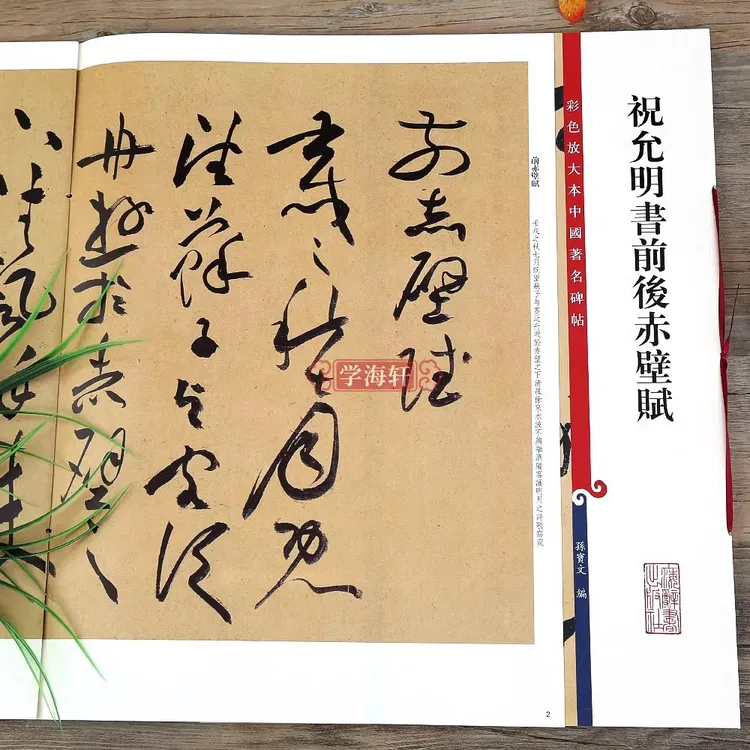 祝允明書前後赤壁賦
上海辭書
出版社
彩色放大本中國著名碑帖
孫寶文 編
前赤壁賦
壬戌之秋七月既望蘇子與客泛舟遊於赤壁之下清風徐來水波不興舉酒屬客誦明月之詩歌窈窕
前赤壁賦
壬戌之秋七月既
望蘇子與客泛
舟遊於赤壁之
下清風徐來
学海轩
2